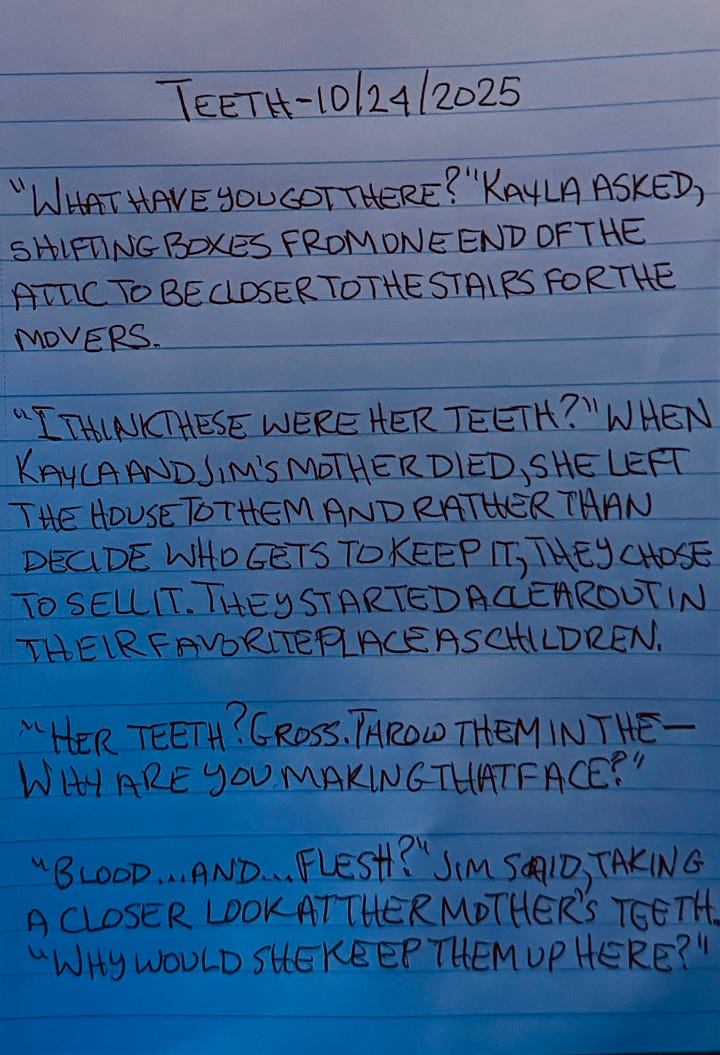 TEETH-10/24/2025
"WHAT HAVE YOU GOT THERE?" KAYLA ASKED,
SHIFTING BOXES FROM ONE END OF THE
ATTIC TO BE CLOSER TO THE STAIRS FOR THE
MOVERS.
"I THINK THESE WERE HER TEETH?" WHEN
KAYLA AND JIM'S MOTHER DIED, SHE LEFT
THE HOUSE TO THEM AND RATHER THAN
DECIDE WHO GETS TO KEEP IT, THEY CHOSE
TO SELL IT. THEY STARTED A CLEAROUT IN
THEIR FAVORITE PLACE AS CHILDREN.
"HER TEETH? GROSS. THROW THEM IN THE—
WHY ARE YOU MAKING THAT FACE?"
"BLOOD...AND...FLESH?" JIM SAID, TAKING
A CLOSER LOOK AT THER MOTHER'S TEETH.
"WHY WOULD SHE KEEP THEM UP HERE?"